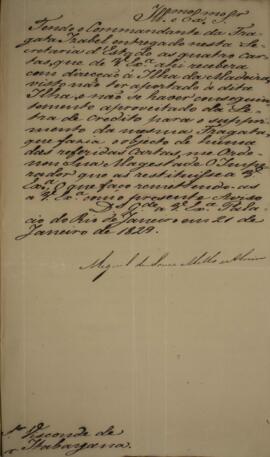 Illmo e Exmo Snr
Tendo o Commandante da Fra-
gata Izabel entregado nesta Se-
cretaria d'Estado as quatro Car-
tas, que de V. Exª ahi recebera
com direcção á Ilha da Madeira,
visto não ter aportado á dita
Ilha, e não se haver conseguin-
temente aproveitado da Le-
tra de credito para o suppri-
mento da mesma Fragata,
que fazia o objecto de huma
das referidas Cartas, me Orde-
nou Sua Magestade O Impe-
rador que as restituisse a V.
Exª O que faço remettendo-as
a V. Exª com o presente Avizo
Ds Gde a V. Exª Pala-
cio do Rio de Janeiro em 21 de
Janeiro de 1829.
Miguel de Souza Mello e Alvim
Sr Visconde de
Itabayana.